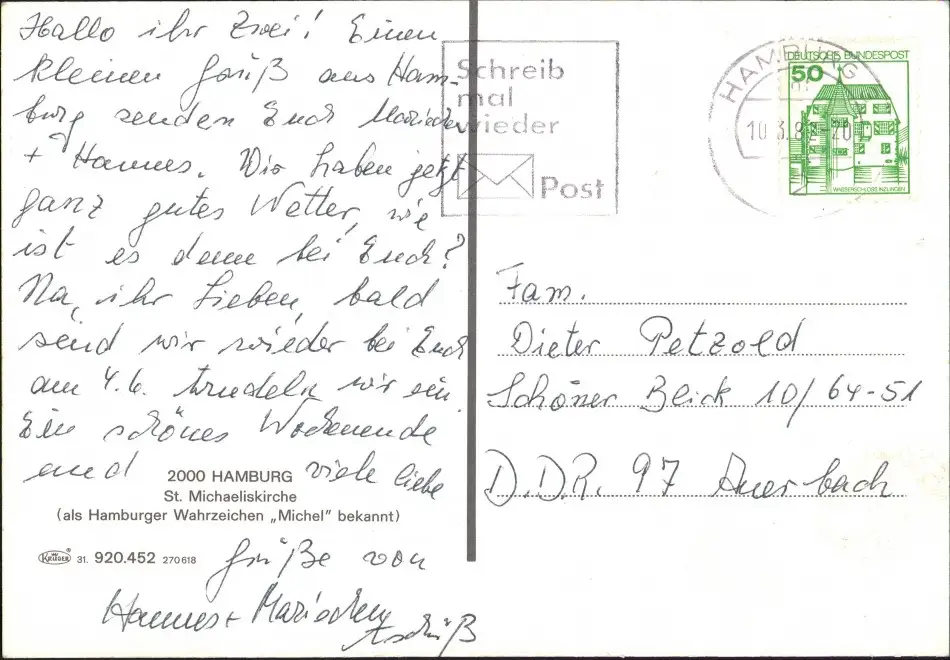 Hallo ihr Zwei! Einen
kleinen Gruß aus Ham-
burg senden Euch Mariechen
+ Hannes. Wir haben jetzt
ganz gutes Wetter, wie
ist es denn bei Euch?
Na, ihr Lieben, bald
sind wir wieder bei Euch
am 4.6. trudeln wir ein.
Ein schönes Wochenende
und viele liebe
Grüße von
Hannes + Mariechen
tschüß
2000 HAMBURG
St. Michaeliskirche
(als Hamburger Wahrzeichen „Michel" bekannt)
KRÜGER ® 31. 920.452 270618
Schreib
mal
wieder
Post
HAMBURG
10.3.8 -20
DEUTSCHE BUNDESPOST
50
WASSERSCHLOSS INZLINGEN
Fam.
Dieter Petzold
Schöner Blick 10/64-51
D.D.R. 97 Auerbach